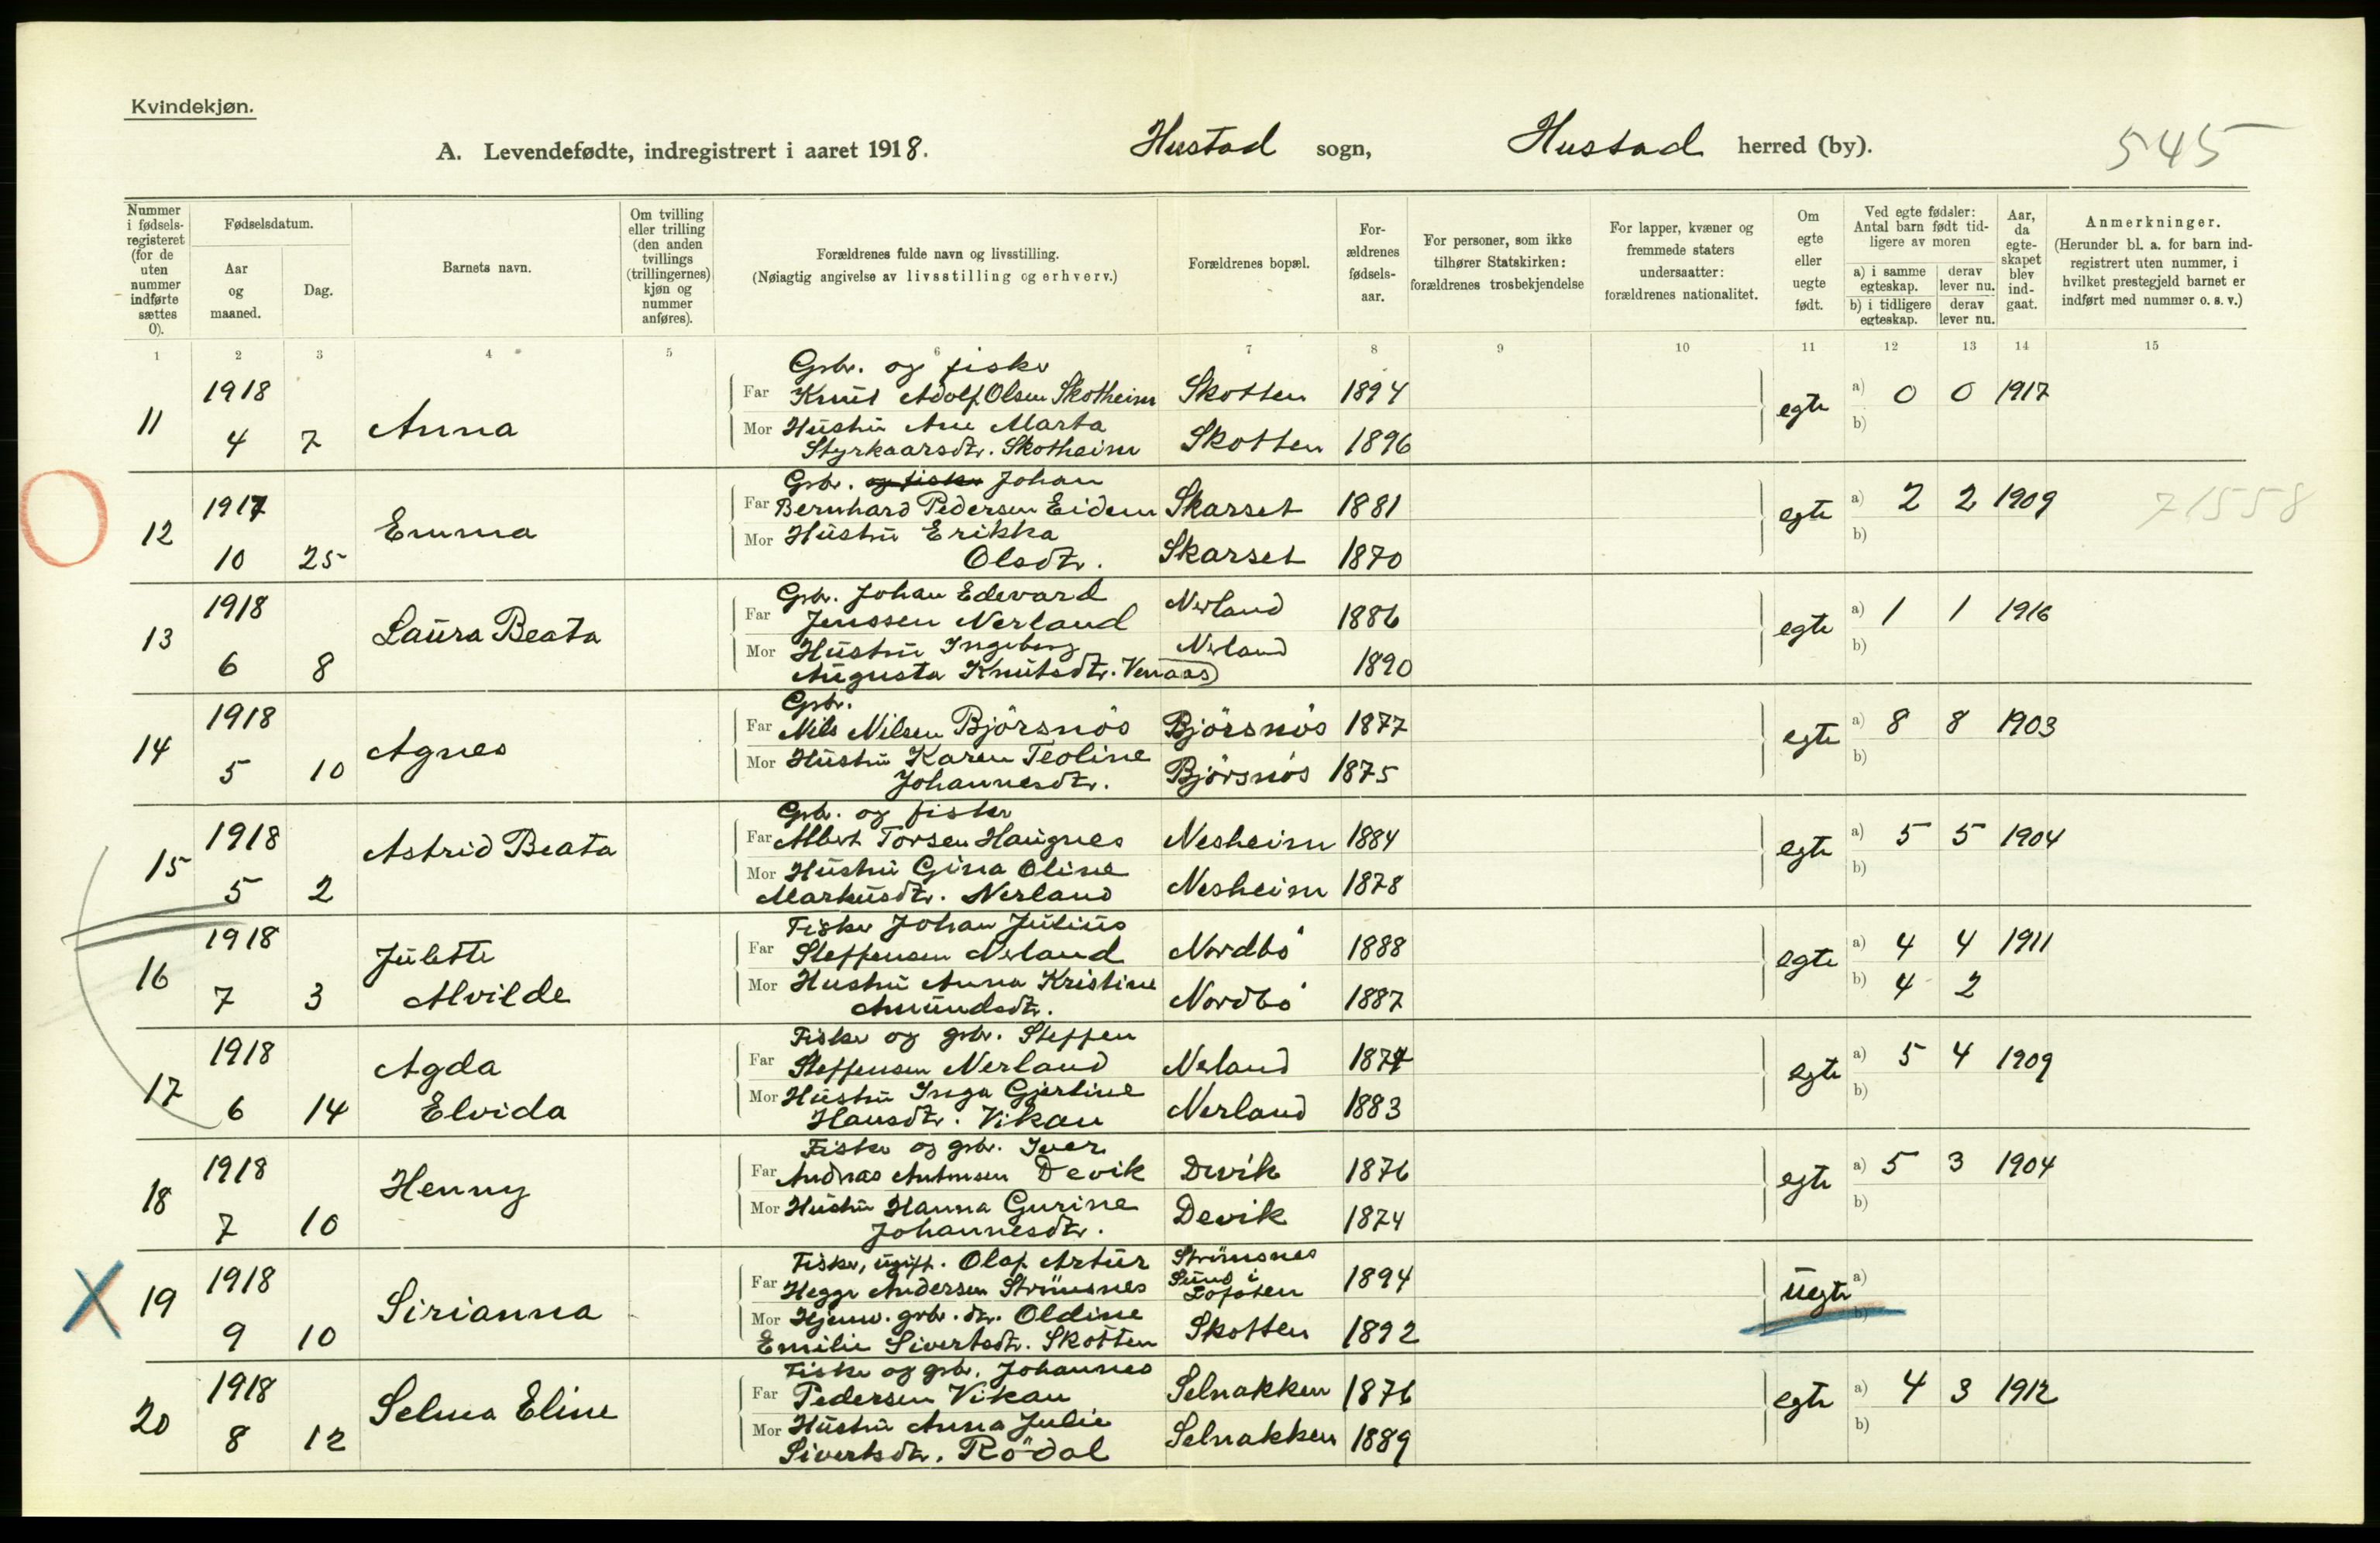 Kvindekjøn.
A. Levendefødte, indregistrert i aaret 1918.
Hustad sogn,
Hustad herred (by).
545
Nummer i fødsels-registeret (for de uten nummer indførte sættes 0).
Fødselsdatum.
Aar og maaned.
Dag.
Barnets navn.
Om tvilling eller trilling (den anden tvillings (trillingernes) kjøn og nummer anføres).
Forældrenes fulde navn og livsstilling.
(Nøiagtig angivelse av livsstilling og erhverv.)
Forældrenes bopæl.
For-ældrenes fødsels-aar.
For personer, som ikke tilhører Statskirken: forældrenes trosbekjendelse
For lapper, kvæner og fremmede staters undersaatter: forældrenes nationalitet.
Om egte eller uegte født.
Ved egte fødsler: Antal barn født tid-ligere av moren
a) i samme egteskap.
derav lever nu.
b) i tidligere egteskap.
derav lever nu.
Aar, da egte-skapet blev ind-gaat.
Anmerkninger.
(Herunder bl. a. for barn ind-registrert uten nummer, i hvilket prestegjeld barnet er indført med nummer o. s. v.)
1 2 3 4 5 6 7 8 9 10 11 12 13 14 15
Grbr. og fisker
11 1918 Far Knut Adolf Olsen Skotheim Skotten 1894 egte a) 0 0 1917
4 7 Anna Mor Hustru Ane Marta b)
Styrkaarsdtr. Skotheim Skotten 1896
Grbr. og fisker Johan
12 1917 Far Bernhard Pedersen Eidem Skarset 1881 egte a) 2 2 1909 71558
Emma Mor Hustru Erikka b)
10 25 Olsdtr. Skarset 1870
Grbr. Johan Edevard
13 1918 Far Jenssen Nerland Nerland 1886 egte a) 1 1 1916
Laura Beata Mor Hustru Ingeborg Nerland b)
6 8 Augusta Knutsdtr. Venaas) 1890
Grbr.
14 1918 Far Nils Nilsen Björsnös Björsnös 1877 egte a) 8 8 1903
5 10 Agnes Mor Hustru Karen Teoline b)
Johannesdtr. Björsnös 1875
Grbr. og fisker
15 1918 Far Albert Torsen Haugnes Nesheim 1884 egte a) 5 5 1904
Astrid Beata Mor Hustru Gina Oline b)
5 2 Markusdtr. Nerland Nesheim 1878
Fisker Johan Julius
16 1918 Julette Far Steffensen Nerland Nordbö 1888 egte a) 4 4 1911
7 3 Alvilde Mor Hustru Anna Kristine b) 4 2
Amundsdtr. Nordbö 1887
Fisker og grbr. Steffen
17 1918 Agda Far Steffensen Nerland Nerland 1874 egte a) 5 4 1909
6 14 Elvida Mor Hustru Inga Gjertine b)
Hansdtr. Vikan Nerland 1883
Fisker og grbr. Iver
18 1918 Henny Far Andreas Antonsen Devik Devik 1876 egte a) 5 3 1904
7 10 Mor Hustru Hanna Gurine b)
Johannesdtr. Devik 1874
Fisker, ugift. Olaf Artur Strömsnes
19 1918 Far Hegge Andersen Strömsnes Sund i Lofoten 1894 uegte a)
Sirianna Mor Hjemv. grbr. dtr. Oldine b)
9 10 Emilie Sivertsdtr. Skotten Skotten 1892
Fisker og grbr. Johannes
20 1918 Far Pedersen Vikan Selnakken 1876 egte a) 4 3 1912
Selma Eline Mor Hustru Anna Julie b)
8 12 Sivertsdtr. Rödal Selnakken 1889